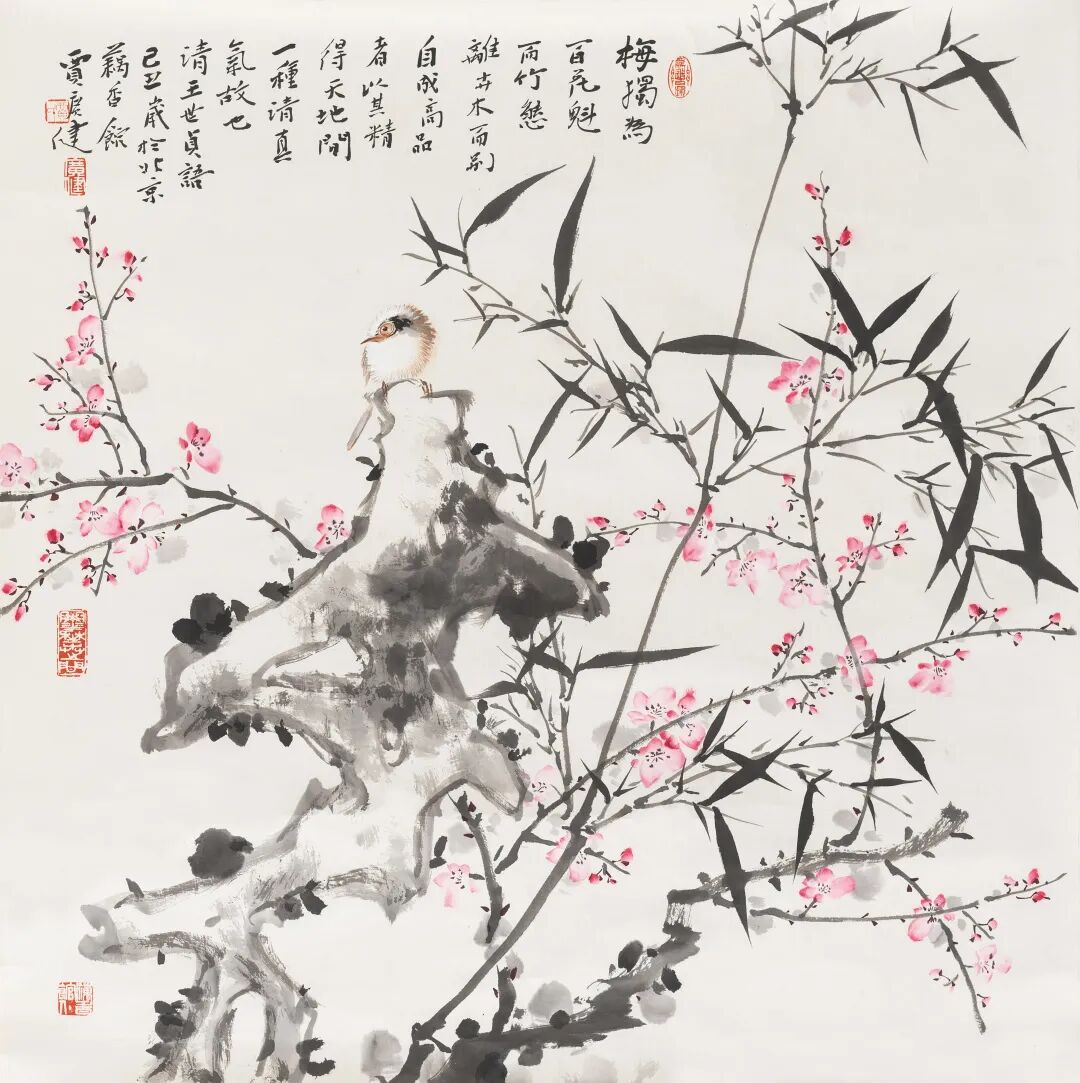 梅獨為
百花魁
而竹
離卉木而別
自成高品
者以其精
得天地間
一種清真
氣故也
清王世貞語
己丑歲於北京
藕香館
賈廣健